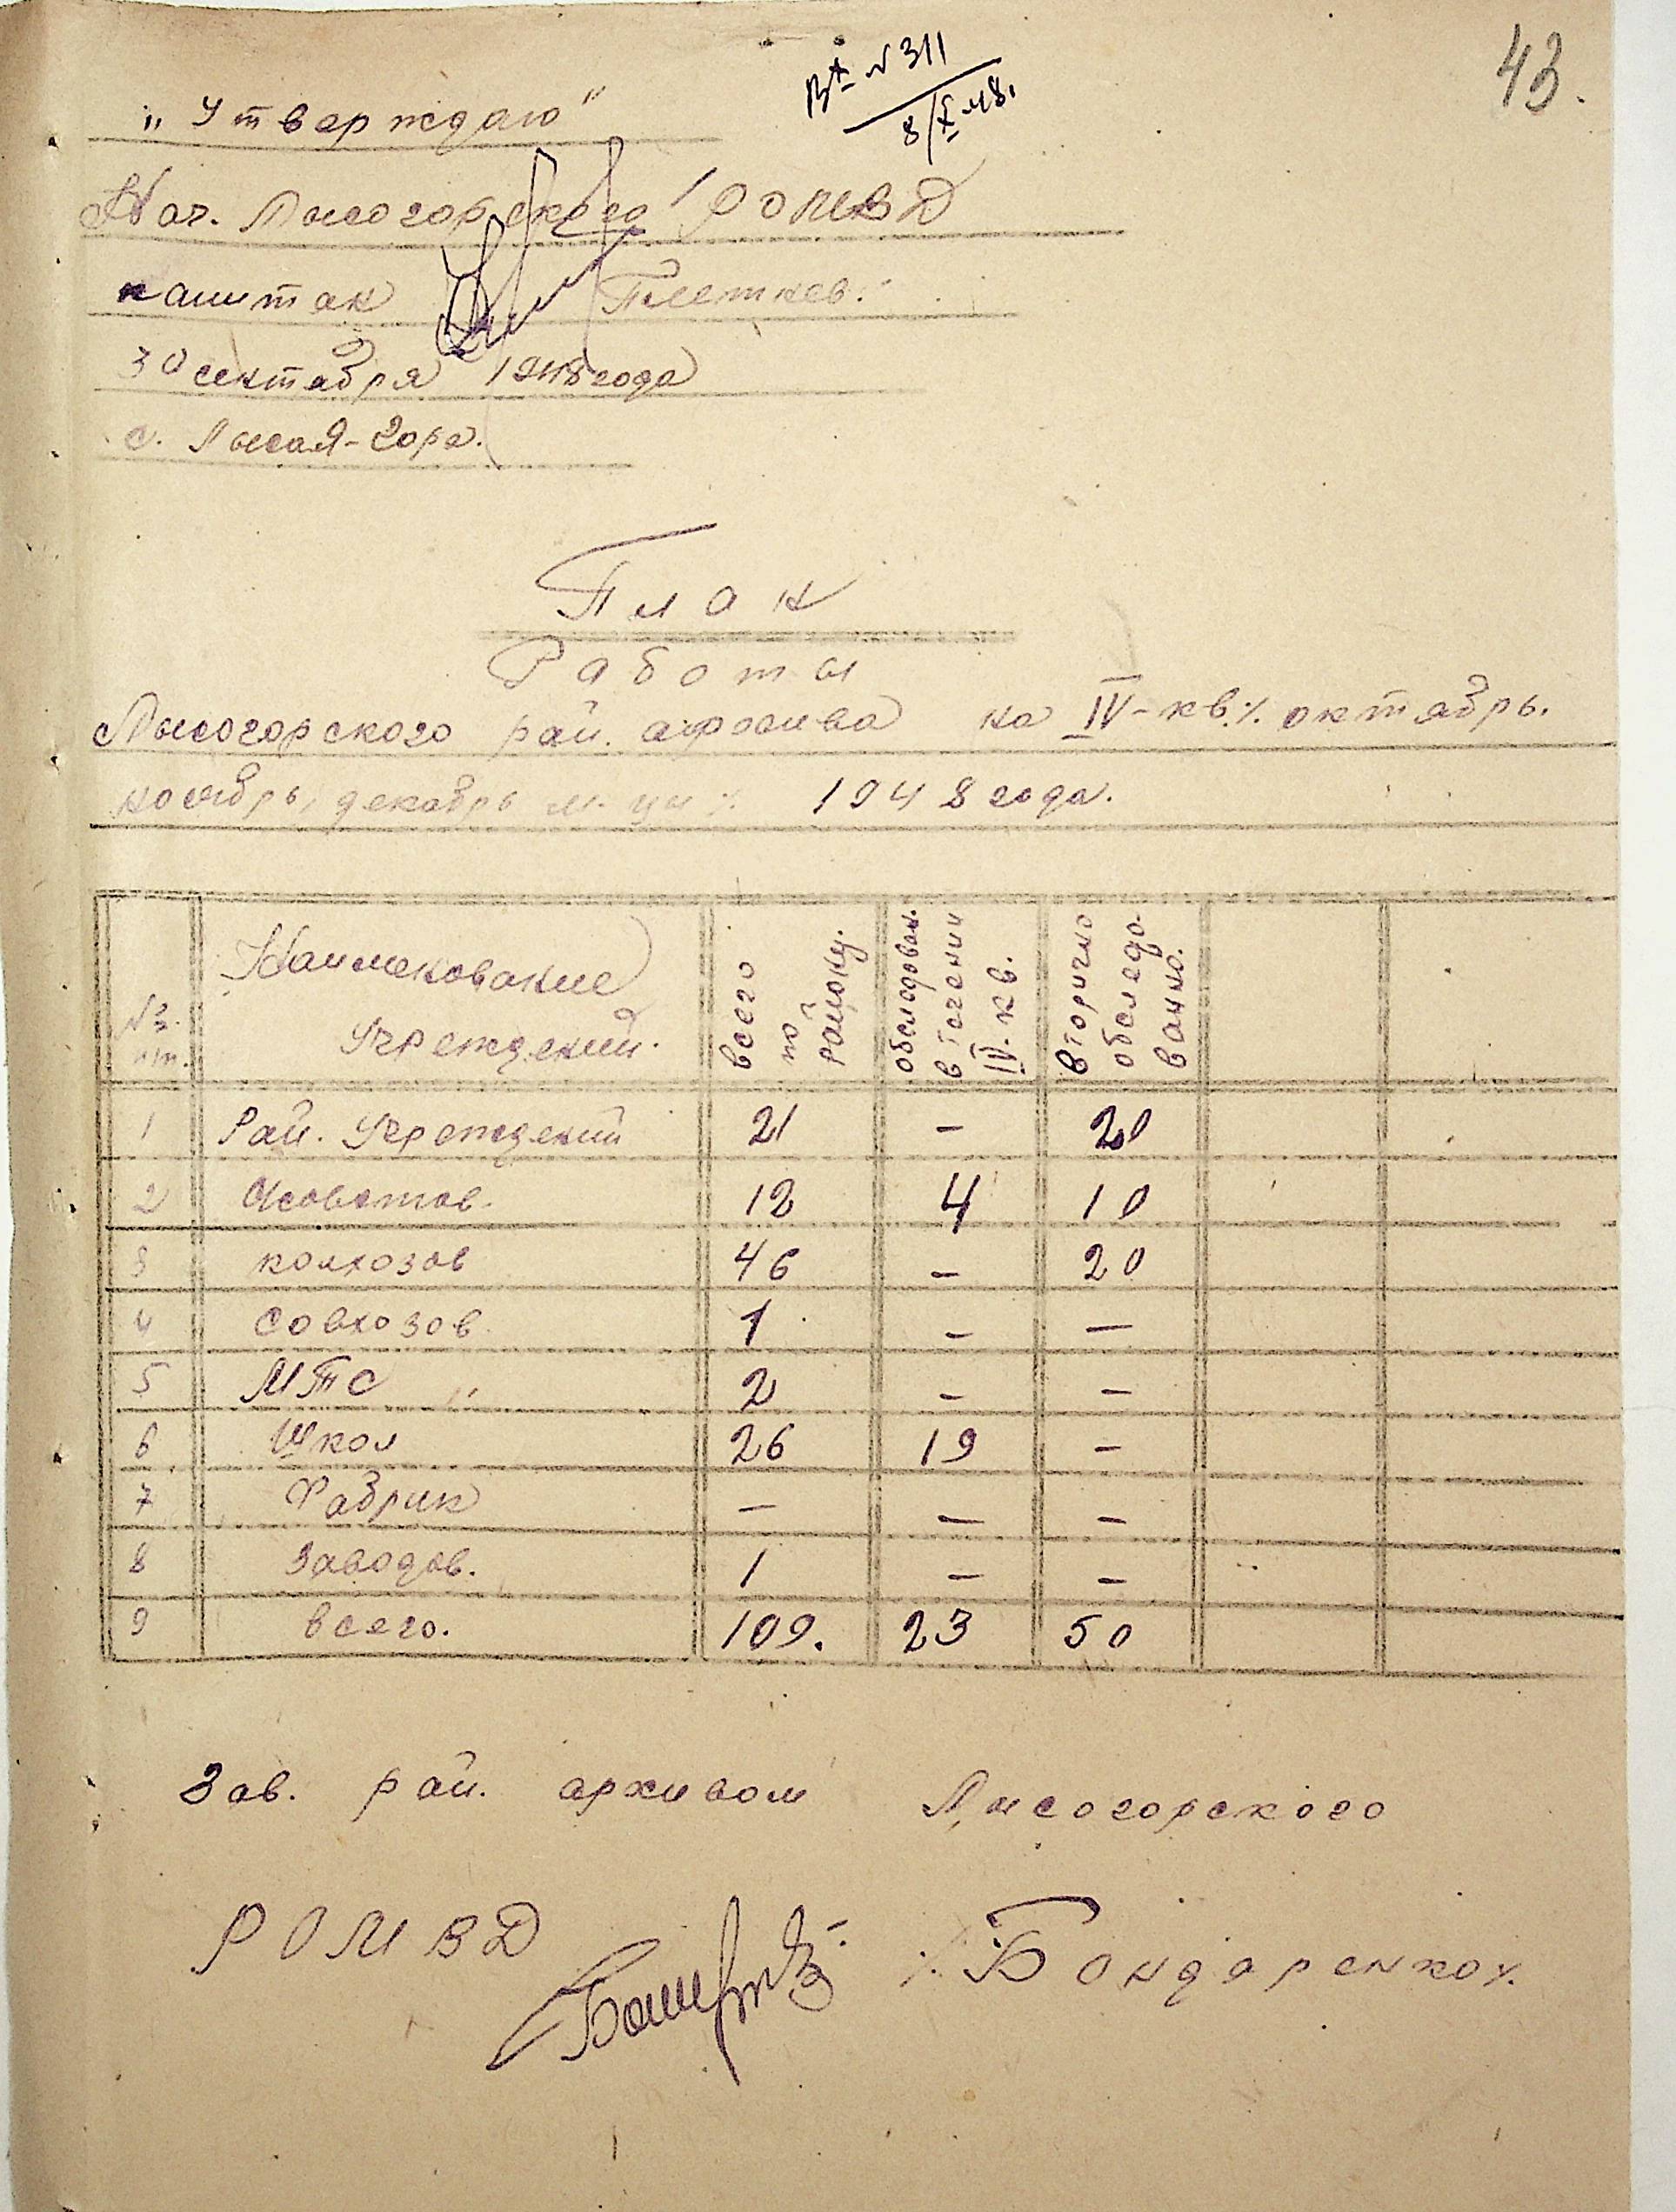 43.
Вх N 311
8/X-48.
„Утверждаю"
Нач. Лысогорского РОМВД
капитан Плетнев.
30 сентября 1948 года
с. Лысая-Гора.
План
Работы
Лысогорского рай. архива на IV-кв. /. октябрь.
ноябрь, декабрь м-цы /. 1948 года.
№№ пп. Наименование Учреждений. всего по району. обследован. в течении IV-кв. вторично обследованно.
1 Рай. Учреждений 21 - 20
2 с/советов. 12 4 10
3 колхозов 46 - 20
4 совхозов 1 - -
5 МТС " 2 - -
6 Школ 26 19 -
7 Фабрик - - -
8 Заводов. 1 - -
9 всего. 109. 23 50
Зав. рай. архивом Лысогорского
РОМВД /. Бондаренко /.